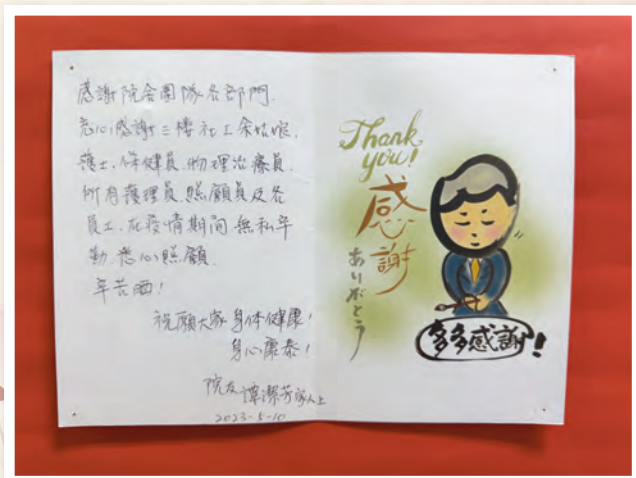 感謝院舍團隊各部門.
衷心感謝三樓社工余姑娘,
護士.保健員.物理治療員.
所有護理員.照顧員及各
員工.在疫情期間 無私辛
勤.悉心照顧.
辛苦晒!
祝願大家 身体健康!
身心康泰!
院友 譚潔芳家人上
2023-5-10
Thank
you!
感謝
ありがとう
多多感謝!